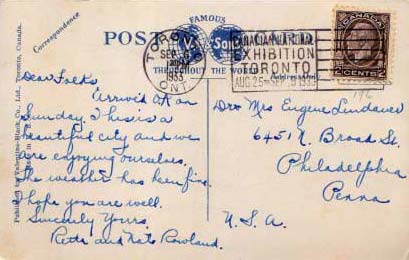 Correspondence
Dear Folks
Arrived OK on
Sunday. This is a
beautiful city and we
are enjoying ourselves.
The weather has been fine.
I hope you are well.
Sincerely Yours,
Reta and Nate Rowland.
FAMOUS
POST
THROUGHOUT THE WORLD
TORONTO
SEP
1933
ONT.
EXHIBITION
TORONTO
AUG.25 - SEP.9 1933
CANADA
2 CENTS 2
Dr & Mrs Eugene Lindauer
6451 N. Broad St.
Philadelphia
Penna
U.S.A.
Published by Valentine-Black Co., Ltd., Toronto, Canada.